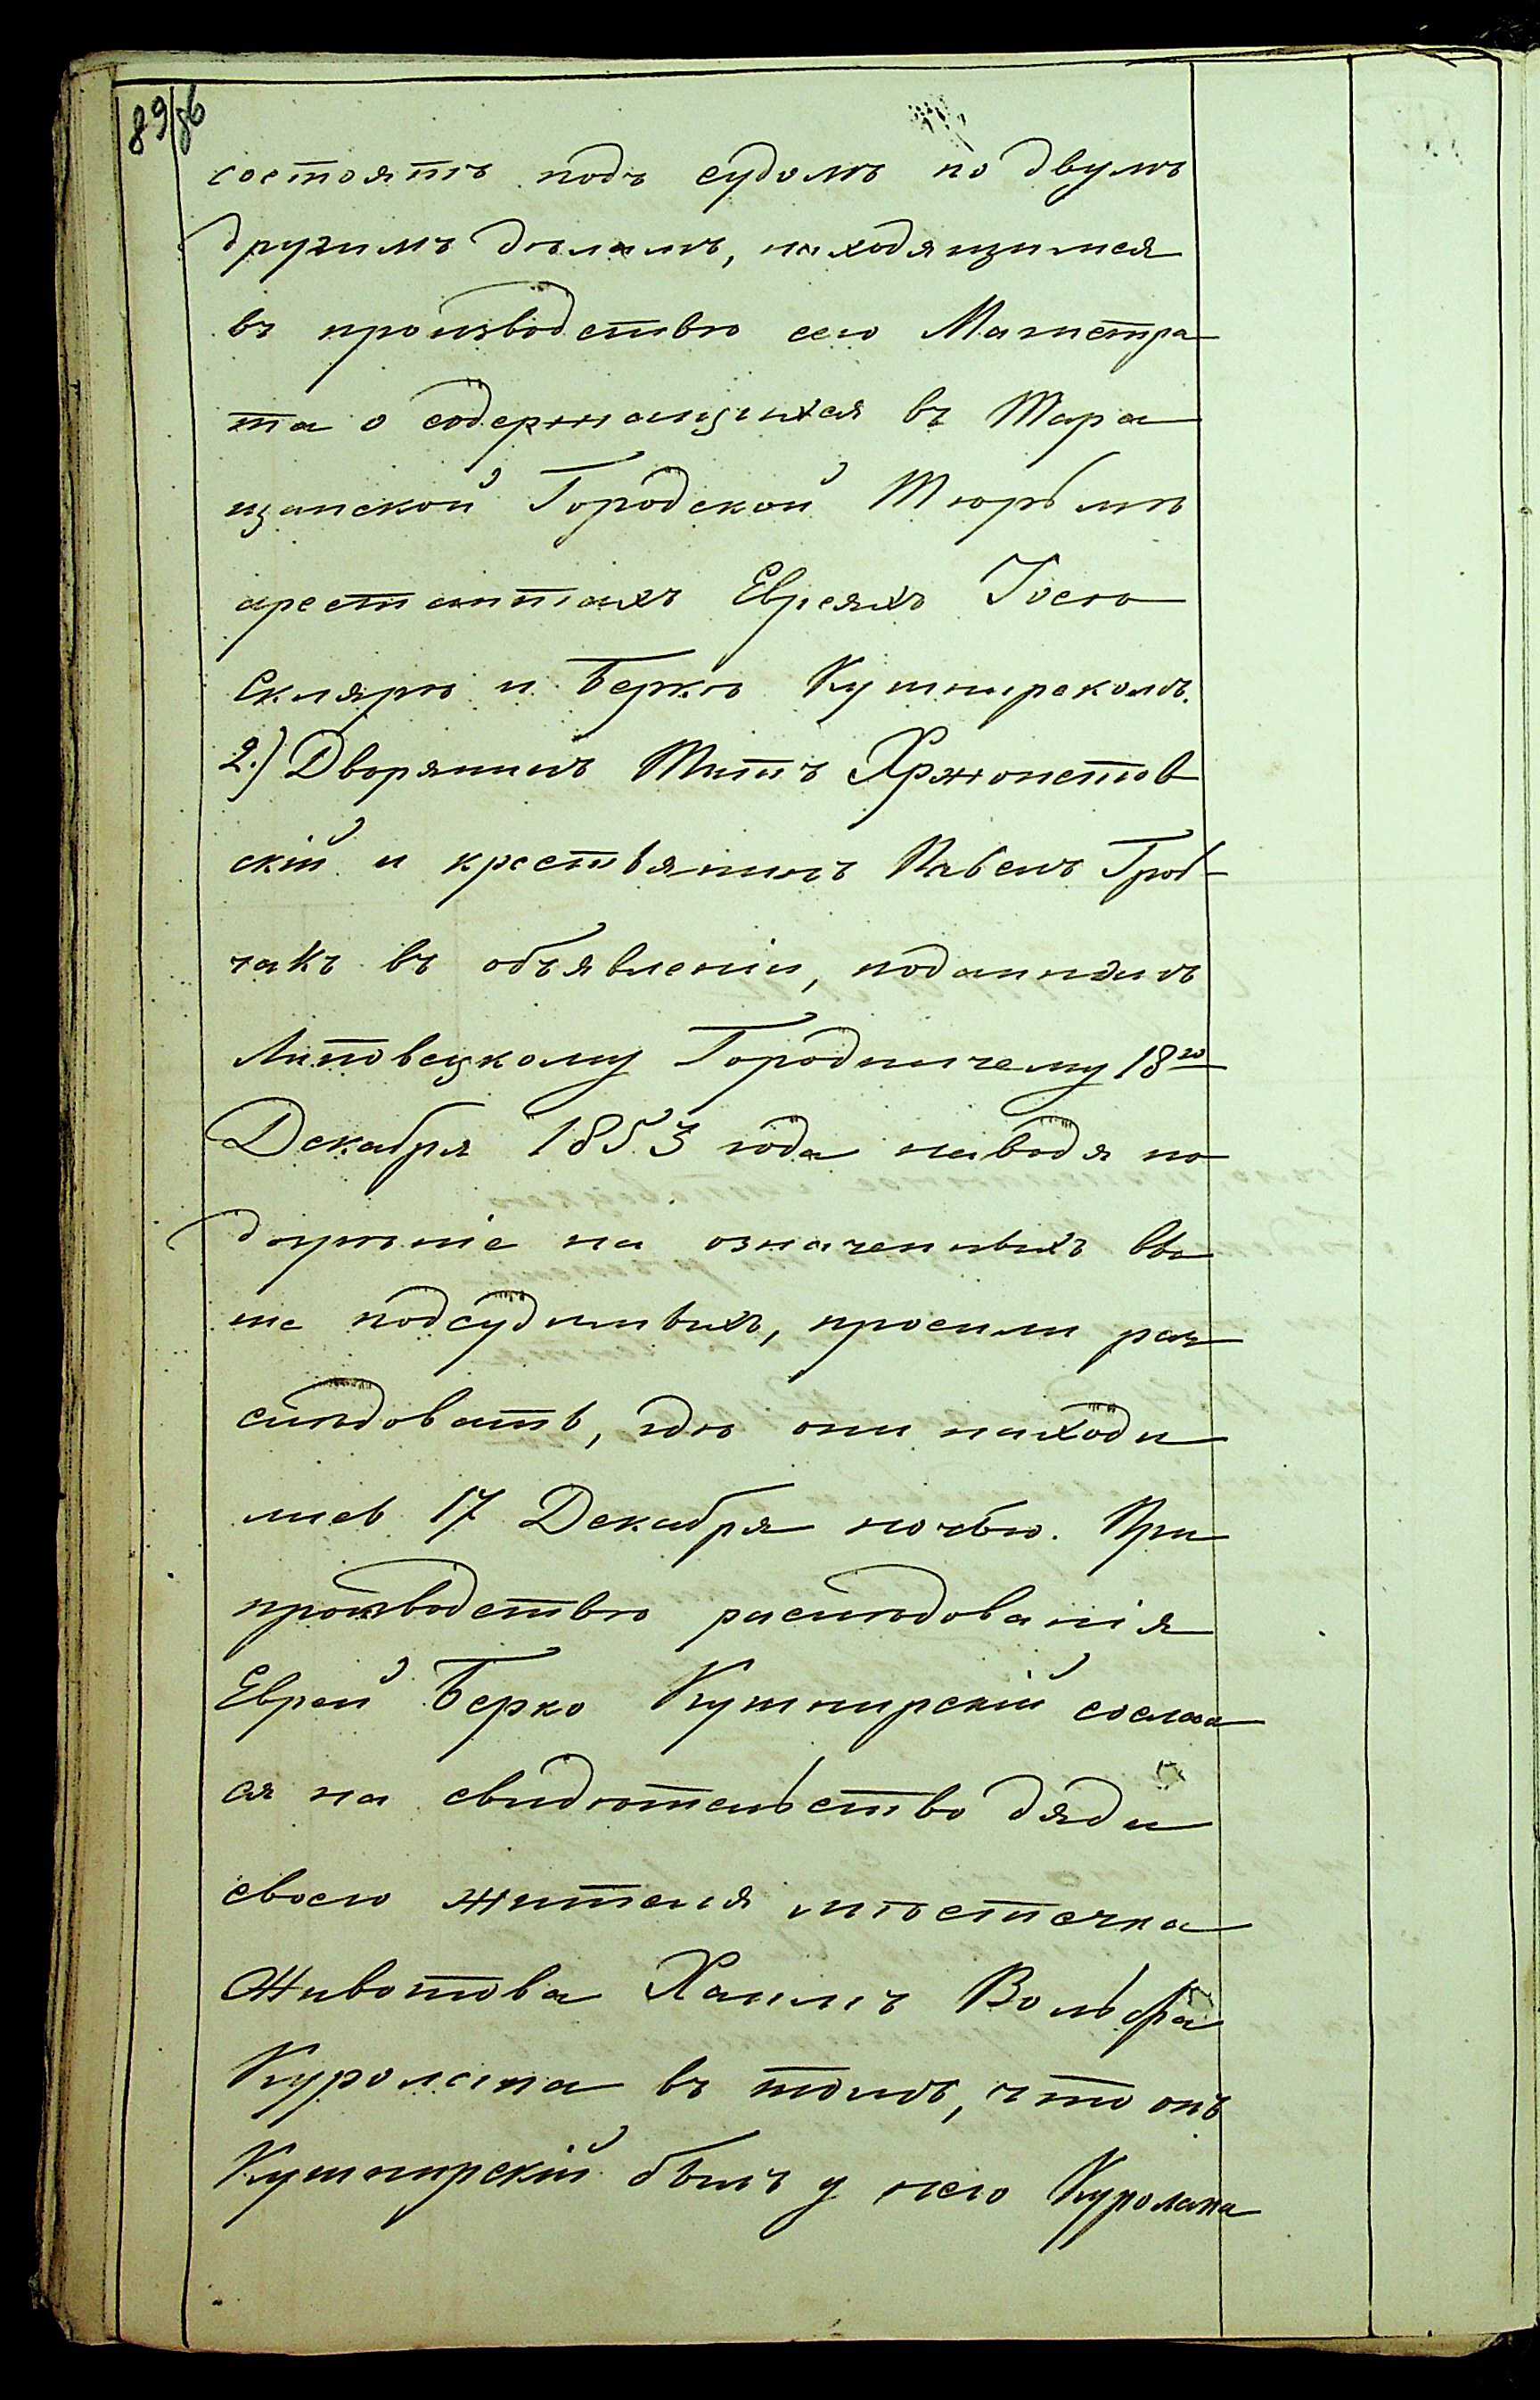 89/86
состоятъ подъ судомъ по двумъ
другимъ дѣламъ, находящимся
въ производствѣ сего Магистра
та о содержащихся въ Тара
щанской Городской Тюрьмѣ
арестантахъ Евреяхъ Іосѣ
Склярѣ и Беркѣ Кушнирскомъ.
2.) Дворянинъ Титъ Хржонстов
скій и крестьянинъ Павелъ Гроб-
чакъ въ объявленіи, поданномъ
Липовецкому Городничему 18го
Декабря 1853 года наводя по
дозрѣніе на означенныхъ вы
ше подсудимыхъ, просили раз
слѣдовать, гдѣ они находи
лись 17 Декабря ночью. При
производствѣ разслѣдованія
Еврей Берко Кушнирскій сослал
ся на свидѣтельство дяди
своего жителя мѣстечка
Животова Хаимъ Вольфа
Куролапа въ томъ, что онъ
Кушнирскій былъ у него Куролапа